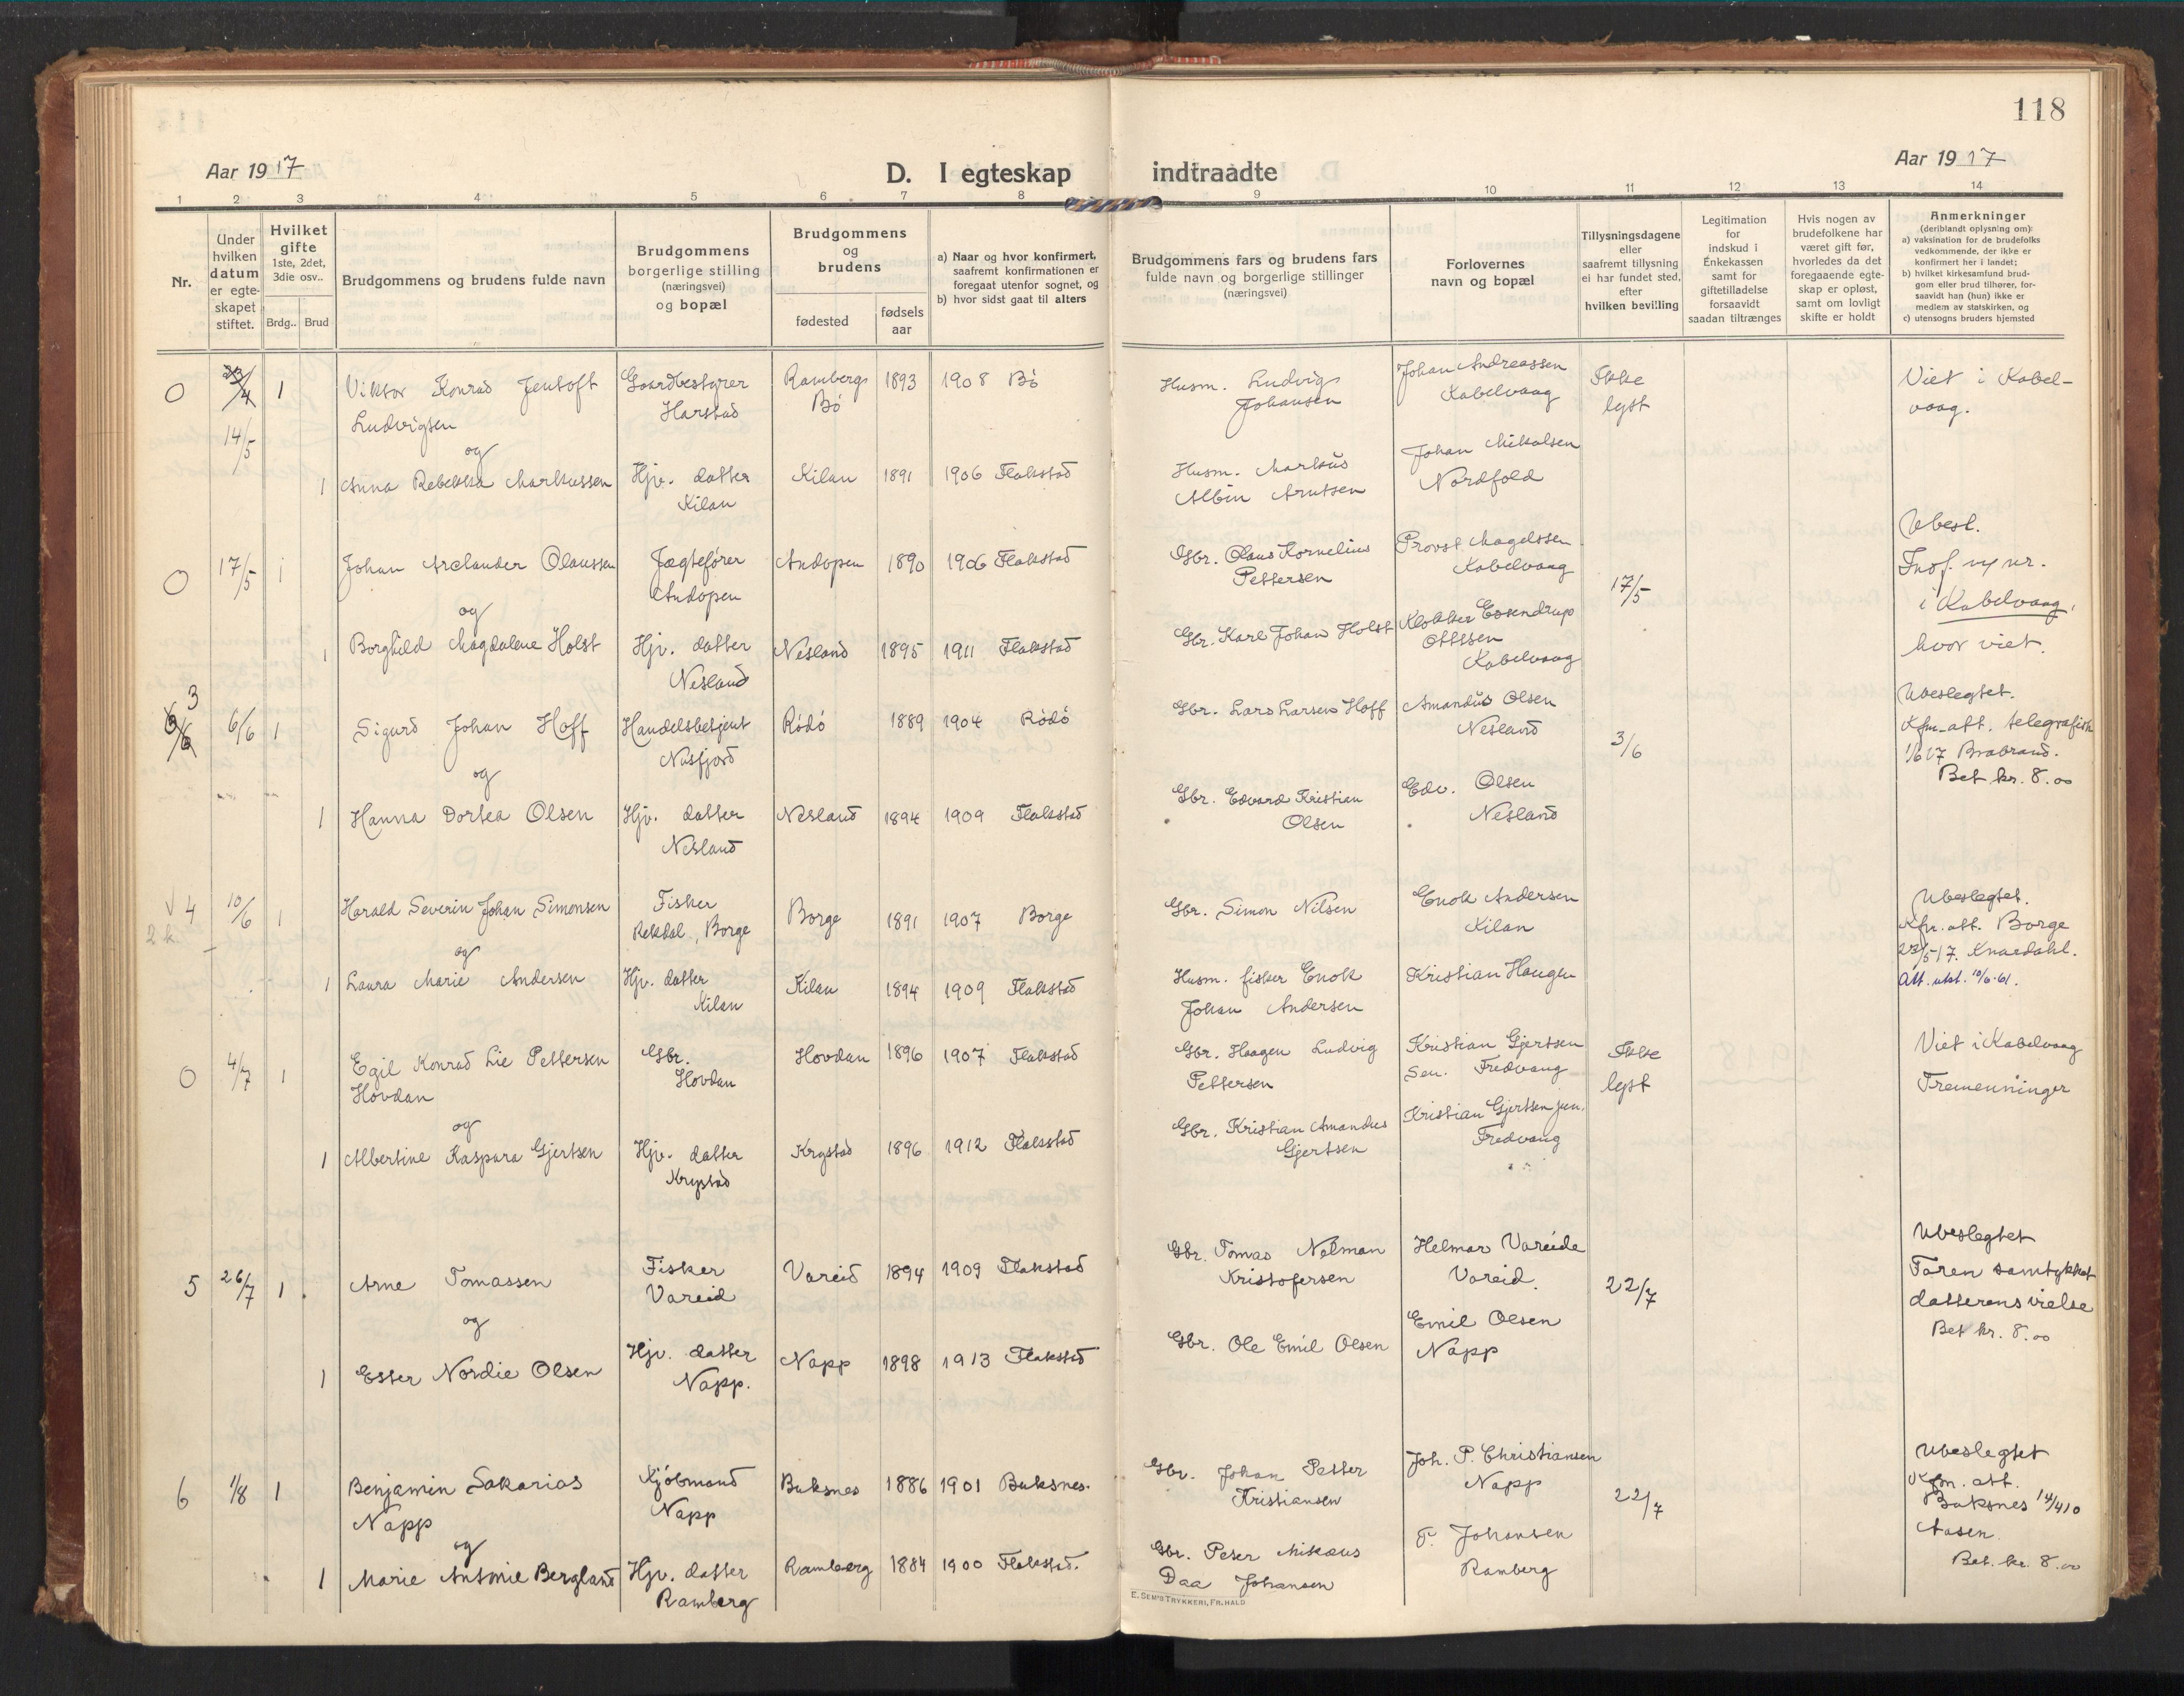 118
Aar 1917
D. I egteskap indtraadte
Aar 1917
1 2 3 4 5 6 7 8 9 10 11 12 13 14
Nr.
Under
hvilken
datum
er egte-
skapet
stiftet.
Hvilket
gifte
1ste, 2det,
3die osv..
Brdg.. Brud
Brudgommens og brudens fulde navn
Brudgommens
borgerlige stilling
(næringsvei)
og bopæl
Brudgommens
og
brudens
fødested
fødsels
aar
a) Naar og hvor konfirmert,
saafremt konfirmationen er
foregaat utenfor sognet, og
b) hvor sidst gaat til alters
Brudgommens fars og brudens fars
fulde navn og borgerlige stillinger
(næringsvei)
Forlovernes
navn og bopæl
Tillysningsdagene
eller
saafremt tillysning
ei har fundet sted,
efter
hvilken bevilling
Legitimation
for
indskud i
Enkekassen
samt for
giftetilladelse
forsaavidt
saadan tiltrænges
Hvis nogen av
brudefolkene har
været gift før,
hvorledes da det
foregaaende egte-
skap er opløst,
samt om lovligt
skifte er holdt
Anmerkninger
(deriblandt oplysning om):
a) vaksination for de brudefolks
vedkommende, der ikke er
konfirmert her i landet;
b) hvilket kirkesamfund brud-
gom eller brud tilhører, for-
saavidt han (hun) ikke er
medlem av statskirken, og
c) utensogns bruders hjemsted
0 14/5 1 Viktor Konrad Jentoft
Ludvigsen
og
Gaardbestyrer
Harstad
Ramberg
Bö
1893 1908 Bö
Husm. Ludvig
Johansen
Johan Andreassen
Kabelvaag
Ikke
lyst
Viet i Kabel-
vaag.
1 Anna Rebekka Markussen
Hjv. datter
Kilan
Kilan 1891 1906 Flakstad
Husm. Markus
Albin Arntsen
Johan Mikalsen
Nordfold
0 17/5 1 Johan Arelander Olaussen
og
Jægtefører
Andopen
Andopen 1890 1906 Flakstad
Gbr. Olaus Kornelius
Pettersen
Provst Magelssen
Kabelvaag
17/5
Ubesl.
Indf. m nr.
i Kabelvaag,
hvor viet.
1 Borghild Magdalene Holst
Hjv. datter
Nesland
Nesland 1895 1911 Flakstad
Gbr. Karl Johan Holst
Klokker Essendrup
Ottesen
Kabelvaag
3 6/6 1 Sigurd Johan Hoff
og
Handelsbetjent
Nusfjord
Rödö 1889 1904 Rödö
Gbr. Lars Larsen Hoff
Amandus Olsen
Nesland
3/6
Ubeslegtet.
Kfm. att. telegrafisk
1/6 17 Brobrand.
Bet kr. 8.00
1 Hanna Dortea Olsen
Hjv. datter
Nesland
Nesland 1894 1909 Flakstad
Gbr. Edvard Kristian
Olsen
Edv. Olsen
Nesland
V 4 10/6 1 Harald Severin Johan Simonsen
2 k.
og
Fisker
Rekdal, Borge
Borge 1891 1907 Borge
Gbr. Simon Nilsen
Enok Andersen
Kilan
Ubeslegtet.
Kfm. att. Borge
23/5 17. Knædahl.
Att. utst. 10/6-61.
1 Laura Marie Andersen
Hjv. datter
Kilan
Kilan 1894 1909 Flakstad
Husm. fisker Enok
Johan Andersen
Kristian Haugen
0 4/7 1 Egil Konrad Lie Pettersen
Hovdan
og
Gbr.
Hovdan
Hovdan 1896 1907 Flakstad
Gbr. Haagen Ludvig
Pettersen
Kristian Gjertsen
Sen. Fredvang
Ikke
lyst
Viet i Kabelvaag
Tremenninger
1 Albertine Kaspara Gjertsen
Hjv. datter
Krystad
Krystad 1896 1912 Flakstad
Gbr. Kristian Amandus
Gjertsen
Kristian Gjertsen jun.
Fredvang
5 26/7 1 Arne Tomassen
og
Fisker
Vareid
Vareid 1894 1909 Flakstad
Gbr. Tomas Nelman
Kristofersen
Helmar Vareide
Vareid.
22/7
Ubeslegtet
Faren samtykket
datterens vielse
Bet kr. 8.00
1 Ester Nordie Olsen
Hjv. datter
Napp.
Napp 1898 1913 Flakstad
Gbr. Ole Emil Olsen
Emil Olsen
Napp
6 1/8 1 Benjamin Sakarias
Napp
og
Kjöbmand
Napp
Buksnes 1886 1901 Buksnes.
Gbr. Johan Petter
Kristiansen
Joh. P. Christiansen
Napp
22/7
Ubeslegtet
Kfm. att.
Buksnes 14/4 10
Aasen.
Bet. kr. 8.00
1 Marie Antonie Bergland
Hjv. datter
Ramberg
Ramberg 1884 1900 Flakstad.
Gbr. Peter Mikaus
Daa Johansen
P. Johansen
Ramberg
E. SEM'S TRYKKERI, FR. HALD